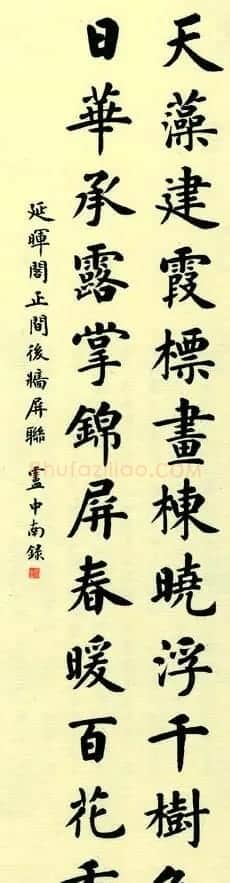 天藻建霞標畫棟曉浮千樹
日華承露掌錦屏春暖百花
延暉閣正間後牆屏聯 盧中南錄
Shufaziliao.com